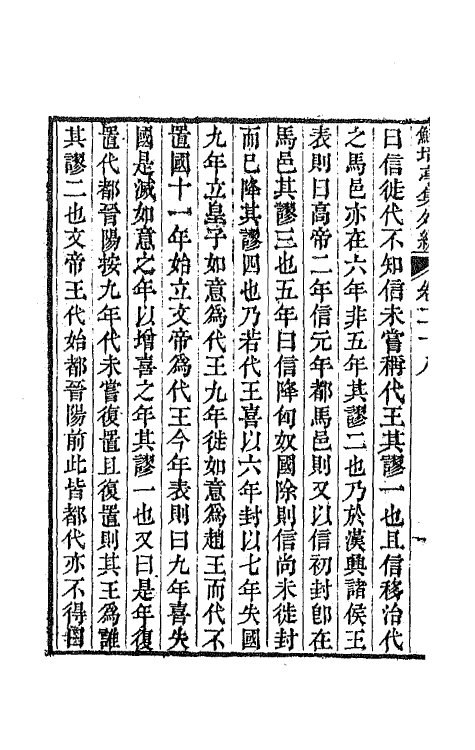 鮚埼亭集外編 卷二十八
曰信徙代不知信未嘗稱代王其謬一也且信移治代
之馬邑亦在六年非五年其謬二也乃於漢興諸侯王
表則曰高帝二年信元年都馬邑則又以信初封卽在
馬邑其謬三也五年曰信降匈奴國除則信尚未徙封
而已降其謬四也乃若代王喜以六年封以七年失國
九年立皇子如意爲代王九年徙如意爲趙王而代不
置國十一年始立文帝爲代王今年表則曰九年喜失
國是滅如意之年以增喜之年其謬一也又曰是年復
置代都晉陽按九年代未嘗復置且復置則其王爲誰
其謬二也文帝王代始都晉陽前此皆都代亦不得